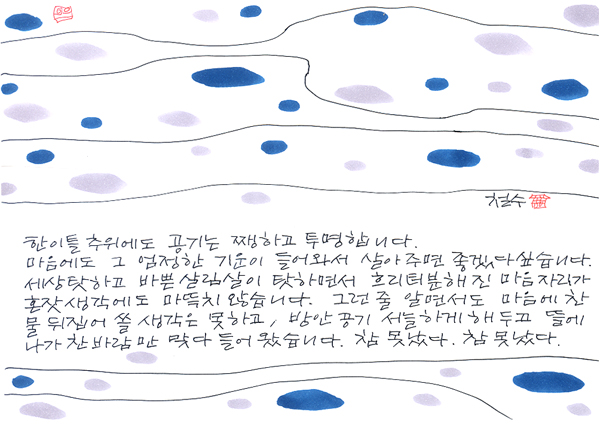 철수
한이틀 추위에도 공기는 쨍하고 투명합니다.
마음에도 그 엄정한 기운이 들어와서 살아주면 좋겠다싶습니다.
세상탓하고 바쁜 살림살이 탓하면서 흐리터분해진 마음자리가
혼잣생각에도 마뜩치 않습니다. 그런 줄 알면서도 마음에 찬
물 뒤집어 쓸 생각은 못하고, 방안 공기 서늘하게 해 두고 뜰에
나가 찬바람만 맞다 들어 왔습니다. 참 못났다. 참 못났다.